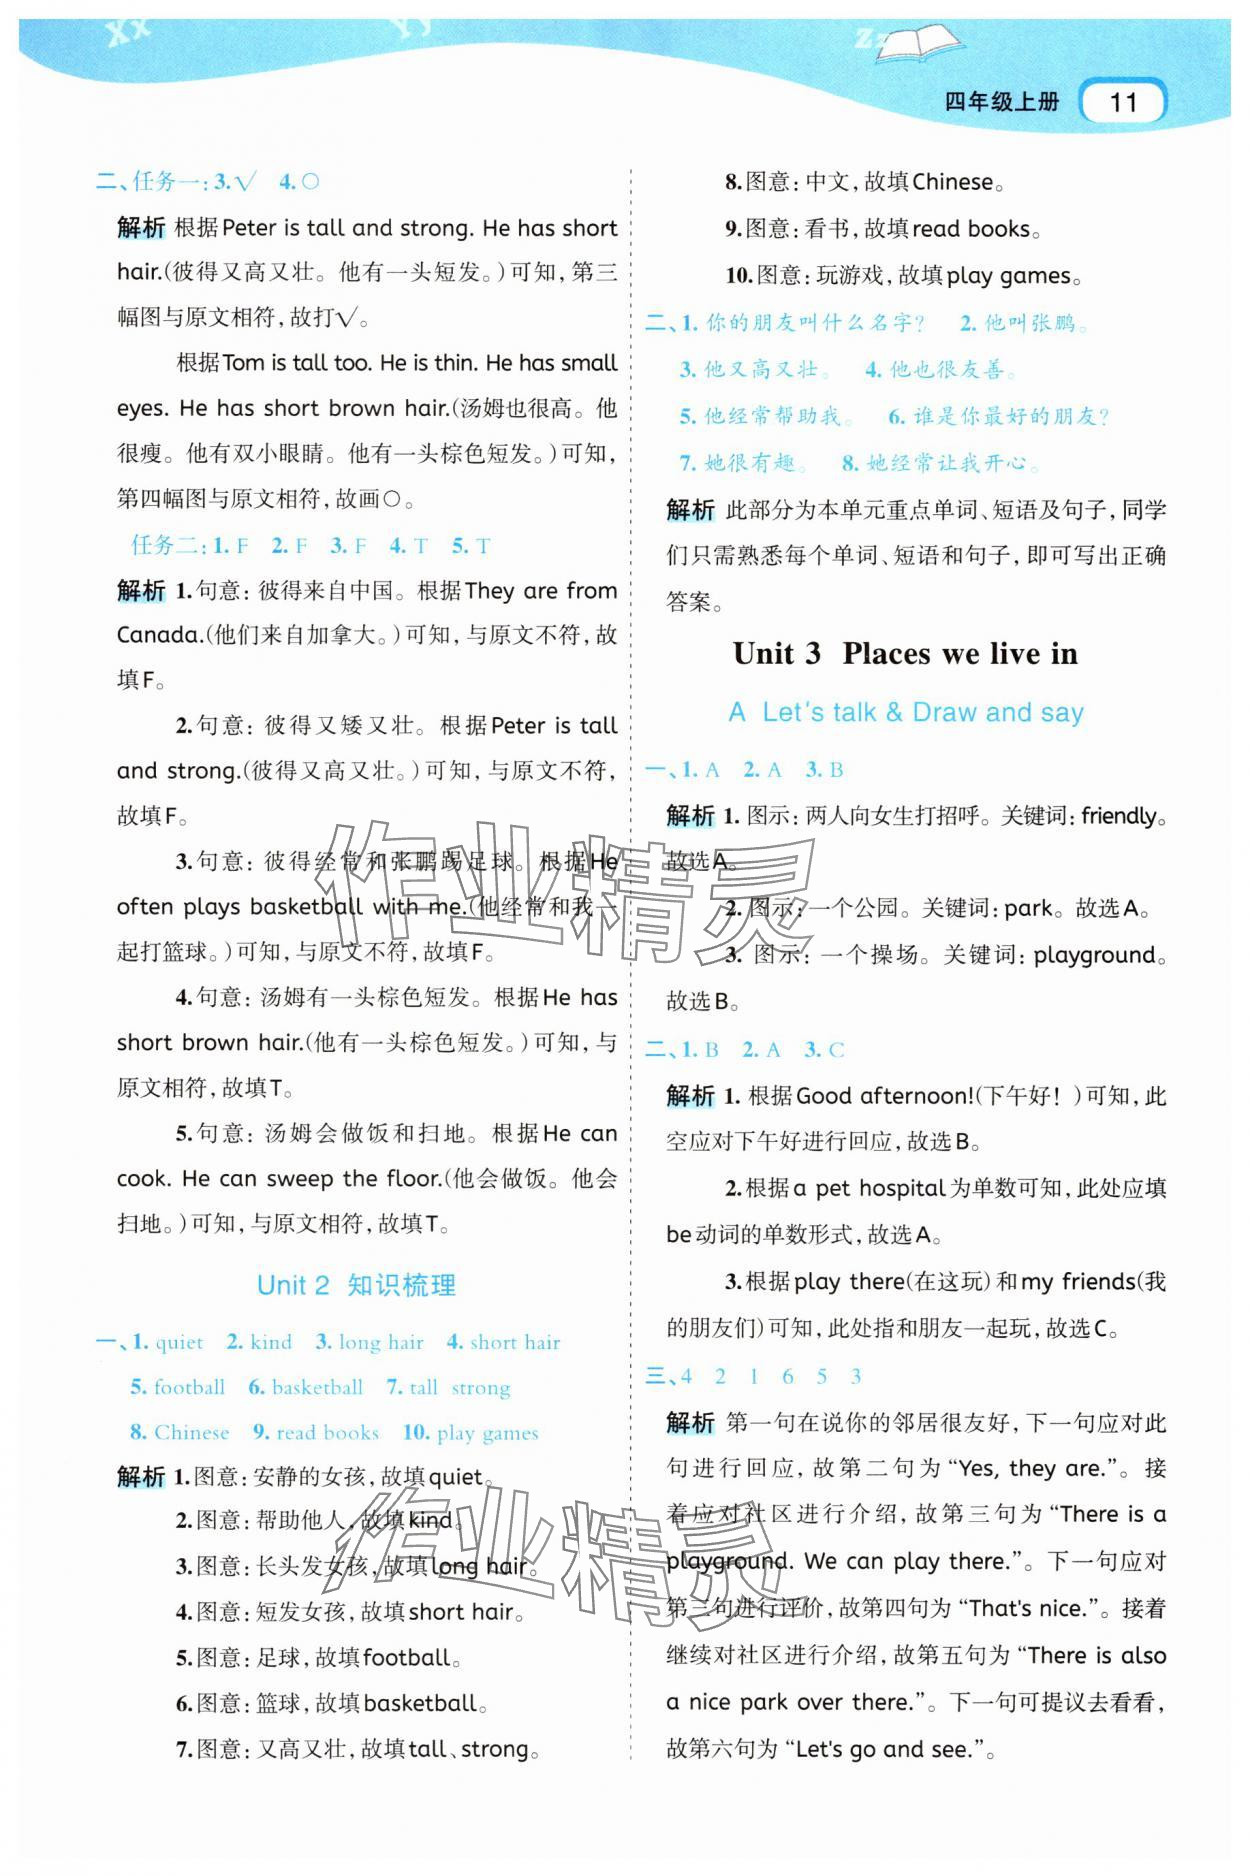 Xx
Yy
Zz
四年级上册
11
二、任务一:3.√ 4.○
解析 根据Peter is tall and strong. He has short
hair.(彼得又高又壮。他有一头短发。)可知,第三
幅图与原文相符,故打√。
根据Tom is tall too. He is thin. He has small
eyes. He has short brown hair.(汤姆也很高。他
很瘦。他有双小眼睛。他有一头棕色短发。)可知,
第四幅图与原文相符,故画○。
任务二:1. F 2. F 3. F 4. T 5. T
解析 1.句意:彼得来自中国。根据They are from
Canada.(他们来自加拿大。)可知,与原文不符,故
填F。
2.句意:彼得又矮又壮。根据Peter is tall
and strong.(彼得又高又壮。)可知,与原文不符,
故填F。
3.句意:彼得经常和张鹏踢足球。根据He
often plays basketball with me.(他经常和我一
起打篮球。)可知,与原文不符,故填F。
4.句意:汤姆有一头棕色短发。根据He has
short brown hair.(他有一头棕色短发。)可知,与
原文相符,故填T。
5.句意:汤姆会做饭和扫地。根据He can
cook. He can sweep the floor.(他会做饭。他会
扫地。)可知,与原文相符,故填T。
Unit 2 知识梳理
一、1. quiet 2. kind 3. long hair 4. short hair
5. football 6. basketball 7. tall strong
8. Chinese 9. read books 10. play games
解析 1.图意:安静的女孩,故填quiet。
2.图意:帮助他人,故填kind。
3.图意:长头发女孩,故填long hair。
4.图意:短发女孩,故填short hair。
5.图意:足球,故填football。
6.图意:篮球,故填basketball。
7.图意:又高又壮,故填tall、strong。
8.图意:中文,故填Chinese。
9.图意:看书,故填read books。
10.图意:玩游戏,故填play games。
二、1. 你的朋友叫什么名字? 2. 他叫张鹏。
3. 他又高又壮。 4. 他也很友善。
5. 他经常帮助我。 6. 谁是你最好的朋友?
7. 她很有趣。 8. 她经常让我开心。
解析 此部分为本单元重点单词、短语及句子,同学
们只需熟悉每个单词、短语和句子,即可写出正确
答案。
Unit 3 Places we live in
A Let's talk & Draw and say
一、1. A 2. A 3. B
解析 1. 图示:两人向女生打招呼。关键词:friendly。
故选A。
2. 图示:一个公园。关键词:park。故选A。
3. 图示:一个操场。关键词:playground。
故选B。
二、1. B 2. A 3. C
解析 1. 根据Good afternoon!(下午好!)可知,此
空应对下午好进行回应,故选B。
2.根据a pet hospital为单数可知,此处应填
be动词的单数形式,故选A。
3.根据play there(在这玩)和my friends(我
的朋友们)可知,此处指和朋友一起玩,故选C。
三、4 2 1 6 5 3
解析 第一句在说你的邻居很友好,下一句应对此
句进行回应,故第二句为“Yes, they are.”。接
着应对社区进行介绍,故第三句为“There is a
playground. We can play there.”。下一句应对
第三句进行评价,故第四句为“That's nice.”。接着
继续对社区进行介绍,故第五句为“There is also
a nice park over there.”。下一句可提议去看看,
故第六句为“Let's go and see.”。
作业精灵
作业精灵